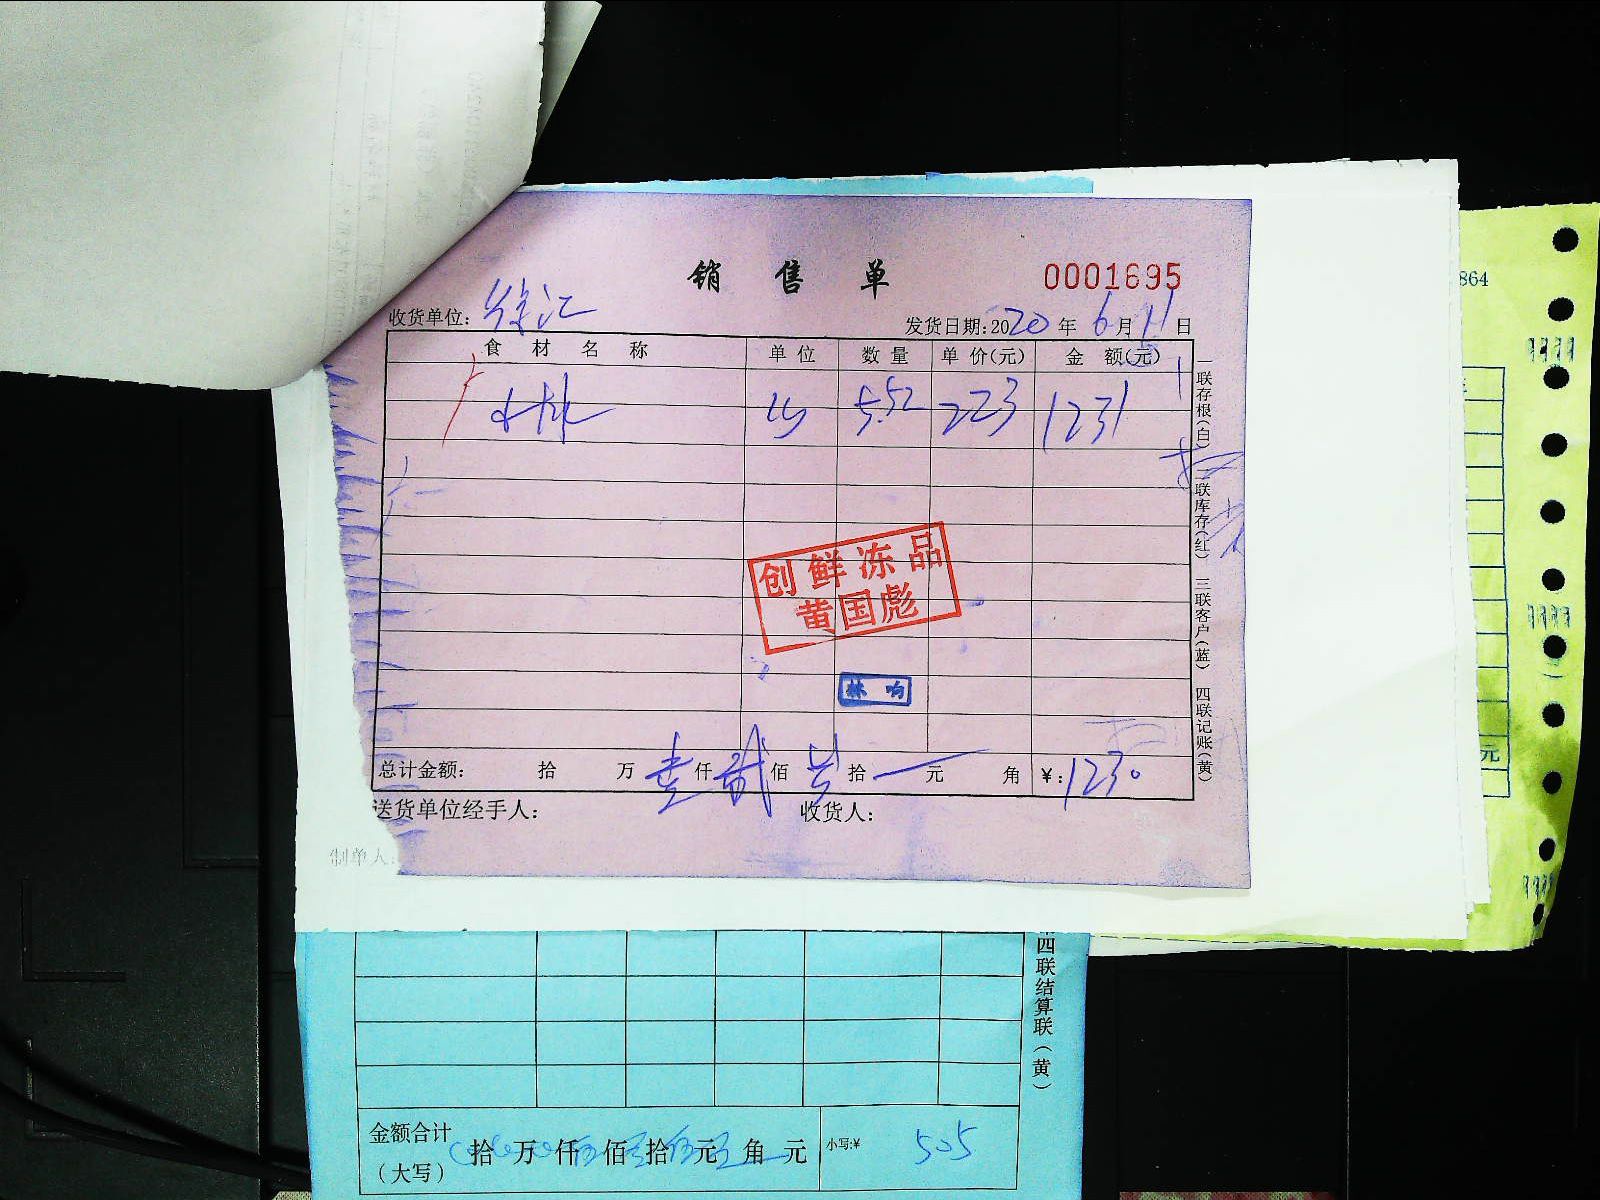 销售单 0001695
收货单位: 徐汇 发货日期:2020年6月11日
食材名称 单位 数量 单价(元) 金额(元)
小排 5.52 223 1231
创鲜冻品
黄国彪
林响
总计金额: 拾 万 壹 仟 贰 佰 叁 拾 元 角 ¥:1230
送货单位经手人: 收货人:
一联存根(白) 二联库存(红) 三联客户(蓝) 四联记账(黄)
制单人:
864
元
四联结算联(黄)
金额合计
(大写) 拾 万 仟 佰 拾 元 角 元 小写:¥ 505